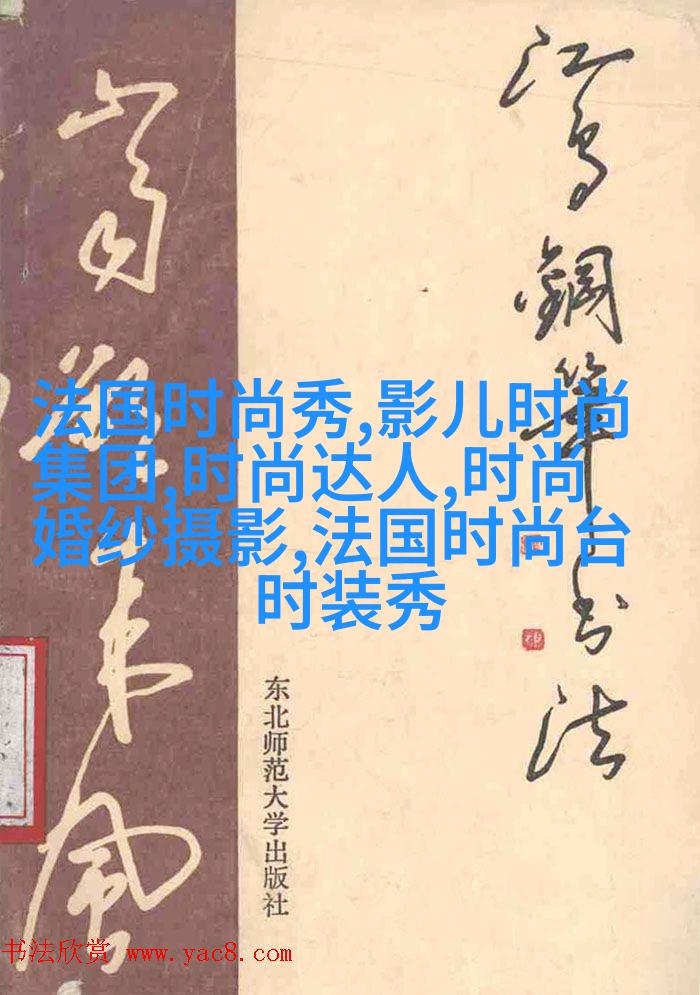 江鸟鋼筆书法
法国时尚秀,影儿时尚
集团,时尚达人,时尚
婚纱摄影,法国时尚台
时装秀
东北师范大学出版社
书法欣赏 www.yac8.com